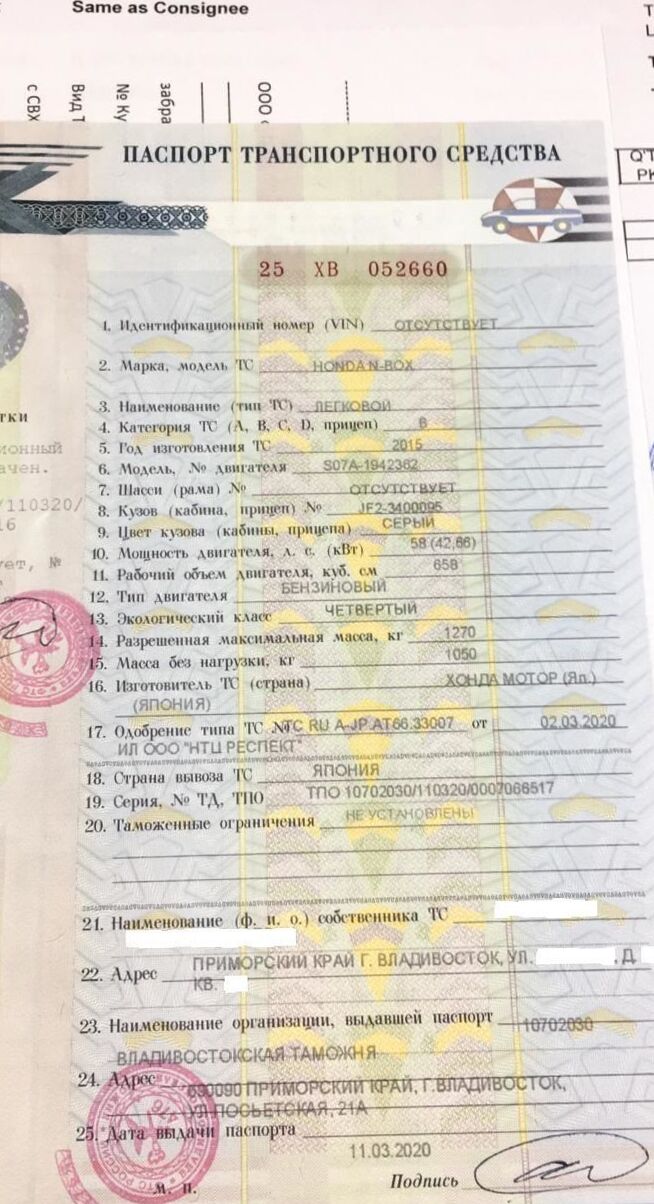 Same as Consignee
с СВХ
Вид Т
№ Ку
забра
ООО
ПАСПОРТ ТРАНСПОРТНОГО СРЕДСТВА
25 ХВ 052660
1. Идентификационный номер (VIN) ОТСУТСТВУЕТ
2. Марка, модель ТС HONDA N-BOX
3. Наименование (тип ТС) ЛЕГКОВОЙ
4. Категория ТС (А, В, С, D, прицеп) В
5. Год изготовления ТС 2015
6. Модель, № двигателя S07A-1942362
7. Шасси (рама) № ОТСУТСТВУЕТ
8. Кузов (кабина, прицеп) № JF2-3400095
9. Цвет кузова (кабины, прицепа) СЕРЫЙ
10. Мощность двигателя, л. с. (кВт) 58 (42,66)
11. Рабочий объем двигателя, куб. см 658
12. Тип двигателя БЕНЗИНОВЫЙ
13. Экологический класс ЧЕТВЕРТЫЙ
14. Разрешенная максимальная масса, кг 1270
15. Масса без нагрузки, кг 1050
16. Изготовитель ТС (страна) ХОНДА МОТОР (Яп.)
(ЯПОНИЯ)
17. Одобрение типа ТС № ТС RU А-JP.АТ66.33007 от 02.03.2020
ИЛ ООО "НТЦ РЕСПЕКТ"
18. Страна вывоза ТС ЯПОНИЯ
19. Серия, № ТД, ТПО ТПО 10702030/110320/0007066517
20. Таможенные ограничения НЕ УСТАНОВЛЕНЫ
21. Наименование (ф. и. о.) собственника ТС
22. Адрес ПРИМОРСКИЙ КРАЙ Г. ВЛАДИВОСТОК, УЛ. , Д
КВ.
23. Наименование организации, выдавшей паспорт 10702030
ВЛАДИВОСТОКСКАЯ ТАМОЖНЯ
24. Адрес 690090 ПРИМОРСКИЙ КРАЙ, Г.ВЛАДИВОСТОК,
УЛ ПОСЬЕТСКАЯ, 21А
25. Дата выдачи паспорта
11.03.2020
М. П. Подпись